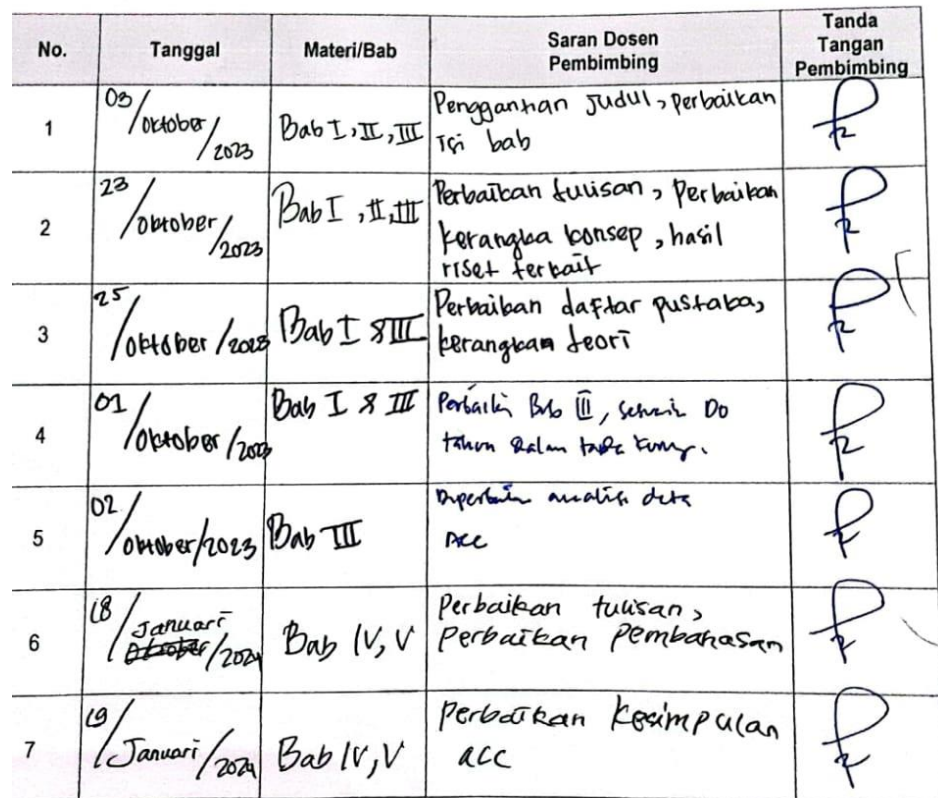 No. Tanggal Materi/Bab Saran Dosen Pembimbing Tanda Tangan Pembimbing
1 03/Oktober/2023 Bab I, II, III Penggantian Judul, perbaikan
isi bab
2 23/Oktober/2023 Bab I, II, III Perbaikan tulisan, perbaikan
kerangka konsep, hasil
riset terkait
3 25/Oktober/2023 Bab I & III Perbaikan daftar pustaka,
kerangkan teori
4 01/Oktober/2023 Bab I & III Perbaiki Bab III, DO
tahun dalam
5 02/Oktober/2023 Bab III Diperbaiki analisis data
ACC
6 18/Januari/2024 Bab IV, V Perbaikan tulisan,
Perbaikan Pembahasan
7 19/Januari/2024 Bab IV, V Perbaikan Kesimpulan
acc